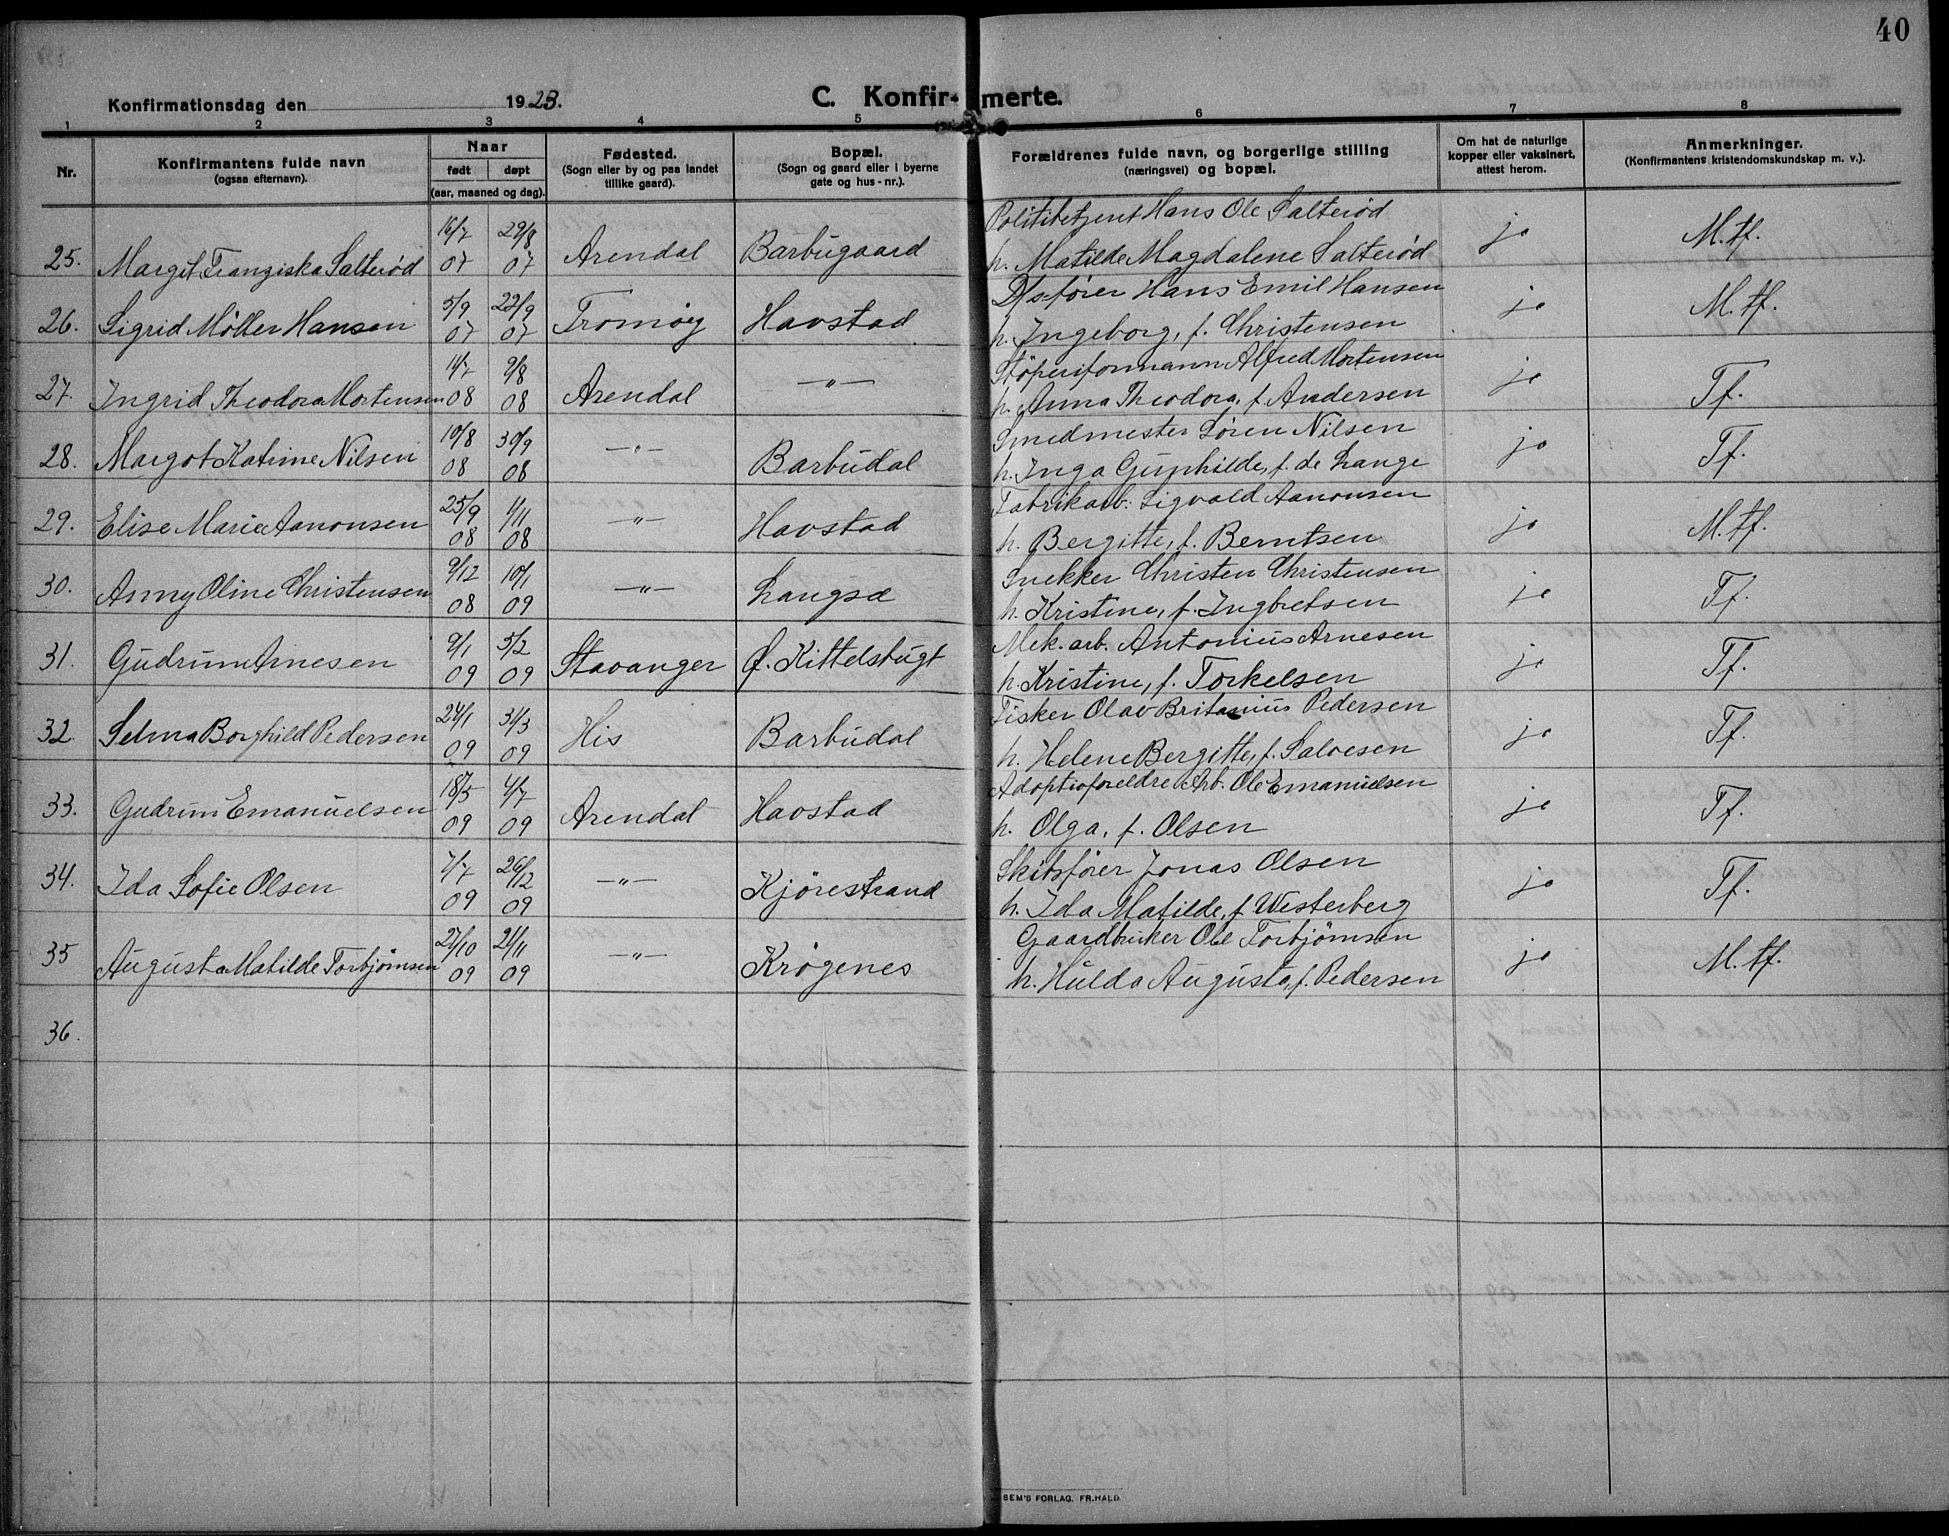 40
Konfirmationsdag den 1923. C. Konfirmerte.
1 2 3 4 5 6 7 8
Nr. Konfirmantens fulde navn (ogsaa efternavn). Naar født døpt (aar, maaned og dag). Fødested. (Sogn eller by og paa landet tillike gaard). Bopæl. (Sogn og gaard eller i byerne gate og hus-nr.). Forældrenes fulde navn, og borgerlige stilling (næringsvei) og bopæl. Om hat de naturlige kopper eller vaksinert, attest herom. Anmerkninger. (Konfirmantens kristendomskundskap m. v.).
16/7 29/8 Politibetjent Hans Ole Salterød
25. Margit Franziska Salterød 07 07 Arendal Barbugaard h. Matilde Magdalene Salterød ja M. tf.
5/9 22/9 D/sfører Hans Emil Hansen
26. Sigrid Möller Hansen 07 07 Tromøy Havstad h. Ingeborg, f. Christensen ja M. tf.
11/7 9/8 Støperiformann Alfred Mortensen
27. Ingrid Theodora Mortensen 08 08 Arendal —"— h. Anna Theodora, f. Andersen ja Tf.
10/8 30/9 Smedmester Søren Nilsen
28. Margot Katrine Nilsen 08 08 —"— Barbudal h. Inga Gunhilde, f. de Lange ja Tf.
25/9 1/11 Fabrikarb. Sigvald Aanonsen
29. Elise Marie Aanonsen 08 08 —"— Havstad h. Bergitte, f. Berntsen ja M. tf.
9/12 10/1 Snekker Christen Christensen
30. Anny Oline Christensen 08 09 —"— Langsæ h. Kristine, f. Ingbretsen ja Tf.
9/1 5/2 Mek. arb. Antonius Arnesen
31. Gudrun Arnesen 09 09 Stavanger Ø. Kittelsbugt h. Kristine, f. Torkelsen ja Tf.
24/1 31/3 Fisker Olav Britanius Pedersen
32. Selma Borghild Pedersen 09 09 His Barbudal h. Helene Bergitte, f. Salvesen ja Tf.
18/5 4/7 Adoptivforeldre Arb. Ole Emanuelsen
33. Gudrun Emanuelsen 09 09 Arendal Havstad h. Olga, f. Olsen ja Tf.
7/7 26/12 Skibsfører Jonas Olsen
34. Ida Sofie Olsen 09 09 —"— Kjørestrand h. Ida Matilde, f. Westerberg ja Tf.
27/10 21/11 Gaardbruker Ole Torbjørnsen
35 Augusta Matilde Torbjørnsen 09 09 —"— Krøgenes h. Hulda Augusta, f. Pedersen ja M. tf.
36.
SEM'S FORLAG. FR. HALD.